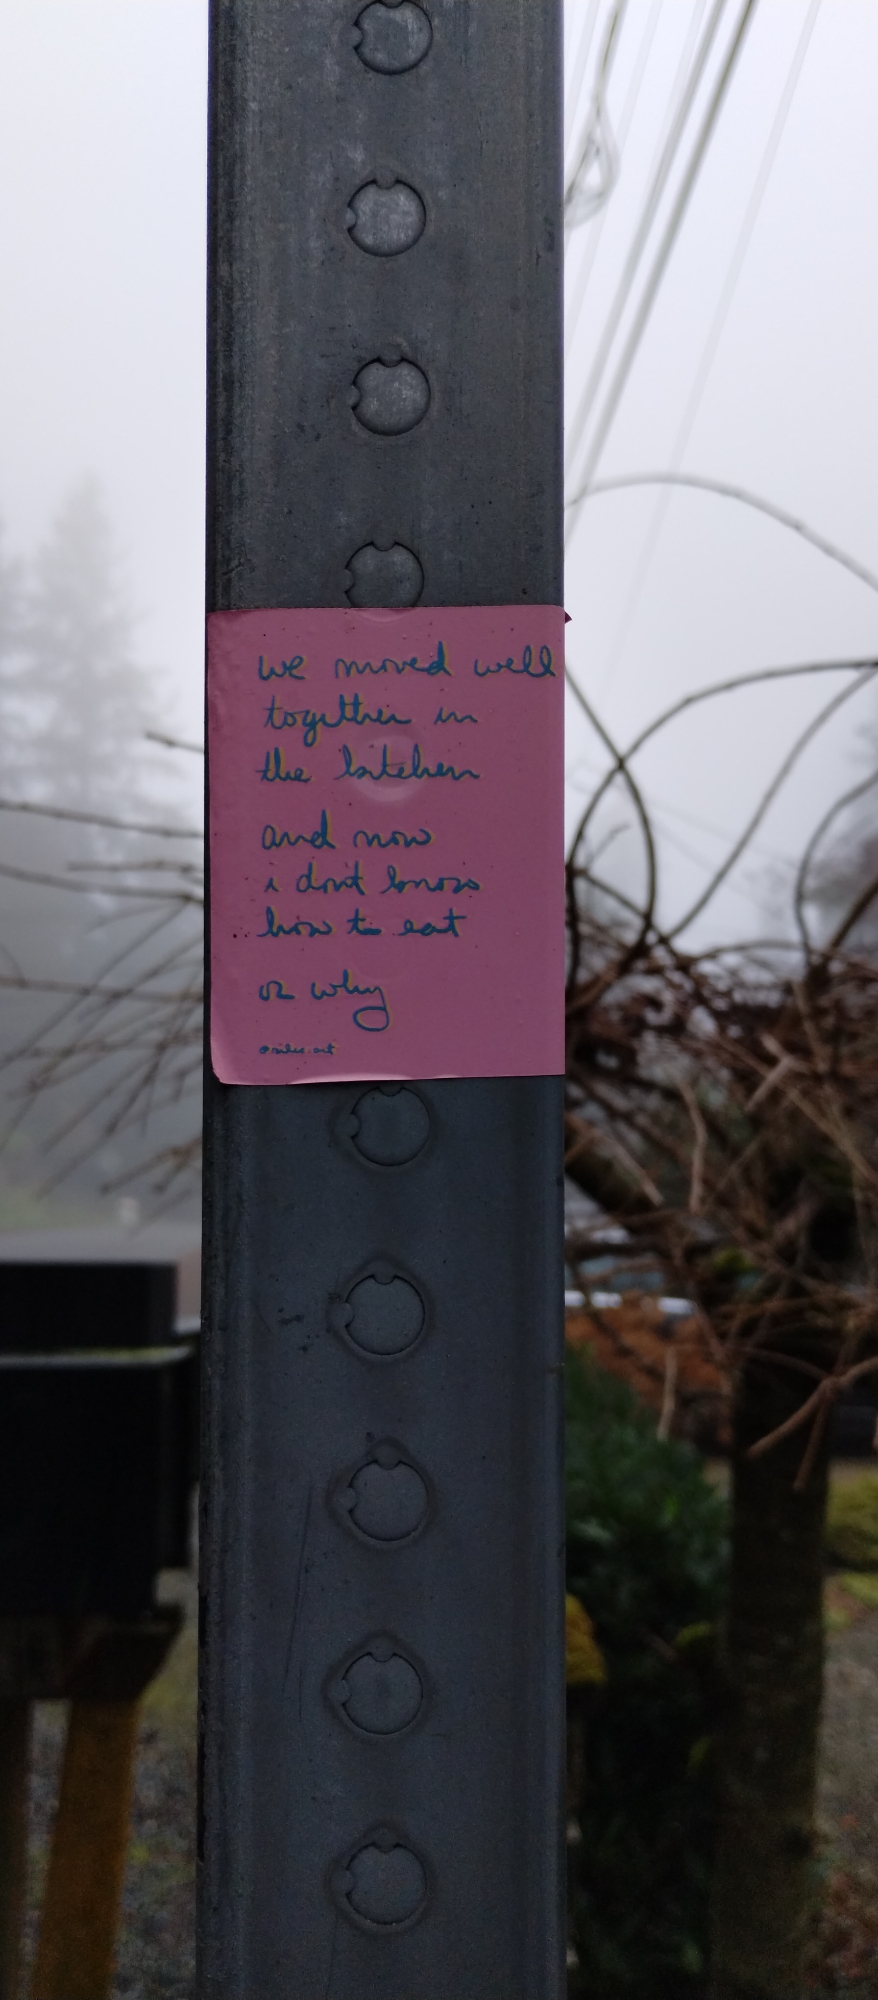 we moved well
together in
the kitchen
and now
i dont know
how to eat
or why